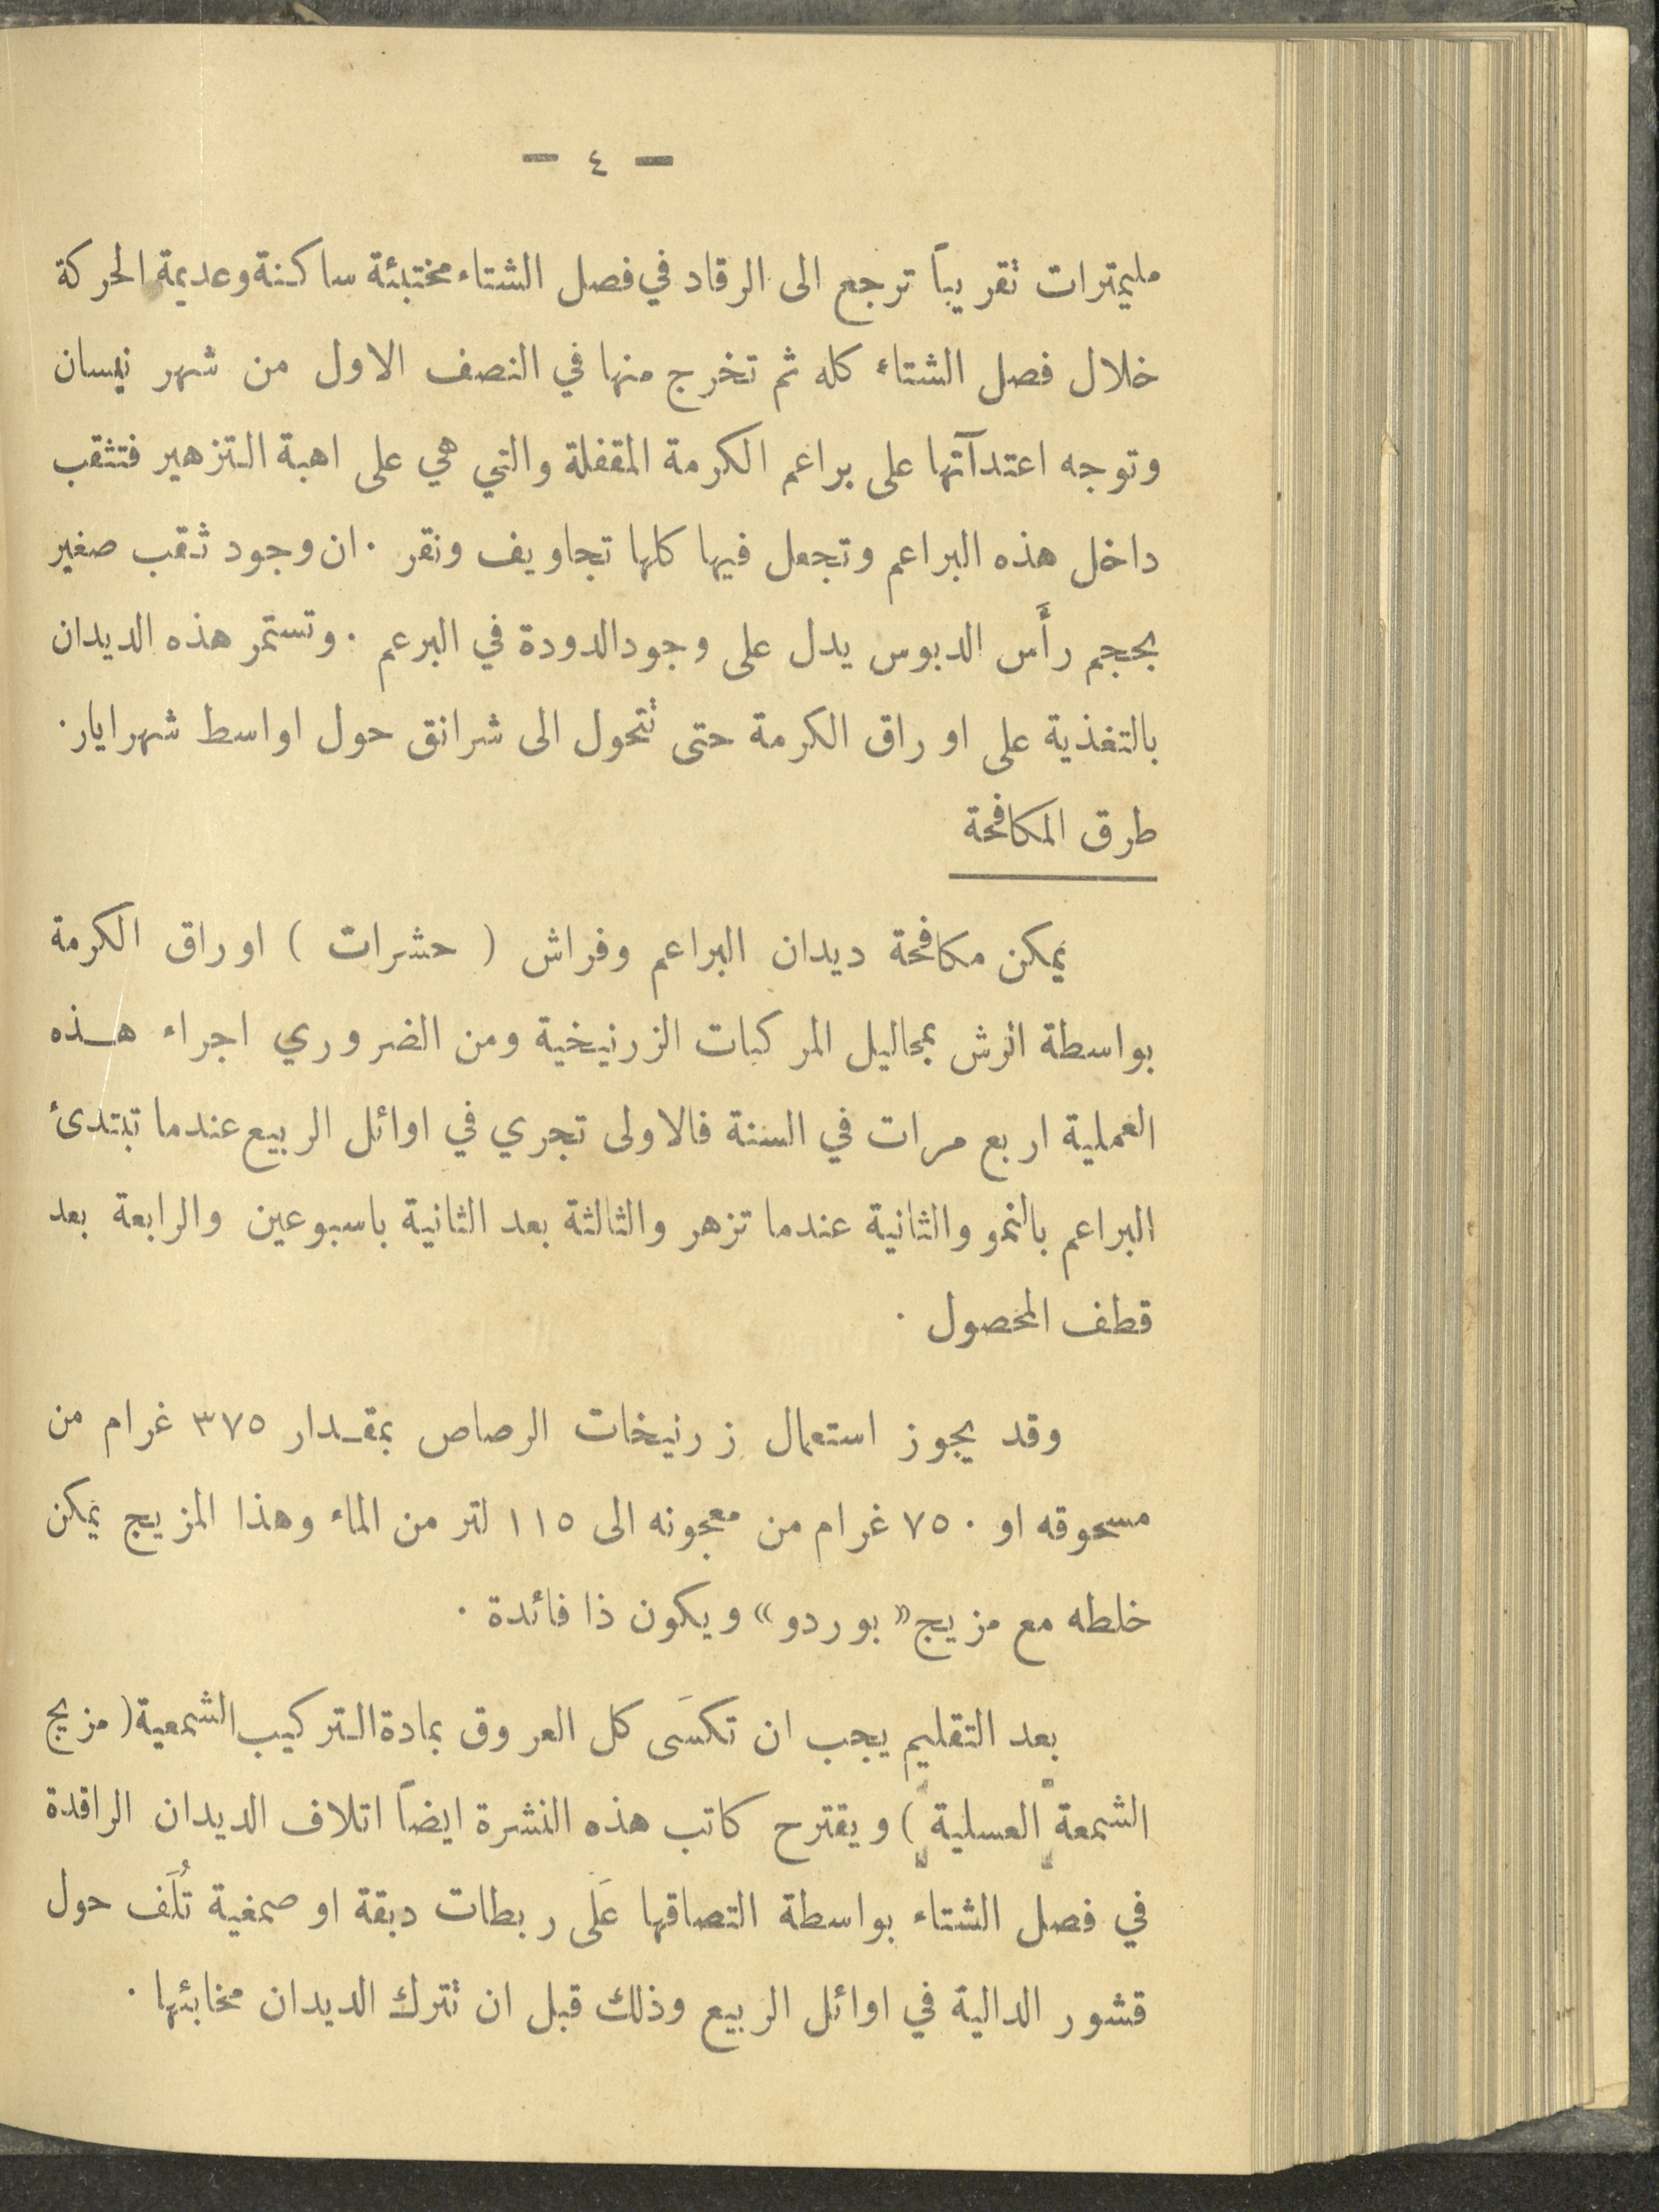 — ٤ —
مليمترات تقريباً ترجع الى الرقاد في فصل الشتاء مختبئة ساكنة وعديمة الحركة
خلال فصل الشتاء كله ثم تخرج منها في النصف الاول من شهر نيسان
وتوجه اعتدآتها على براعم الكرمة المقفلة والتي هي على اهبة التزهير فتثقب
داخل هذه البراعم وتجعل فيها كلها تجاويف ونقر . ان وجود ثقب صغير
بحجم رأَس الدبوس يدل على وجود الدودة في البرعم . وتستمر هذه الديدان
بالتغذية على اوراق الكرمة حتى تتحول الى شرانق حول اواسط شهر ايار .
طرق المكافحة
يمكن مكافحة ديدان البراعم وفراش ( حشرات ) اوراق الكرمة
بواسطة الرش بمحاليل المركبات الزرنيخية ومن الضروري اجراء هـذه
العملية اربع مرات في السنة فالاولى تجري في اوائل الربيع عندما تبتدئ
البراعم بالنمو والثانية عندما تزهر والثالثة بعد الثانية باسبوعين والرابعة بعد
قطف المحصول .
وقد يجوز استعمال زرنيخات الرصاص بمقـدار ٣٧٥ غرام من
مسحوقه او ٧٥٠ غرام من معجونه الى ١١٥ لتر من الماء وهذا المزيج يمكن
خلطه مع مزيج «بوردو» ويكون ذا فائدة .
بعد التقليم يجب ان تكسَى كل العروق بمادة التركيب الشمعية ( مزيج
الشمعة العسلية ) ويقترح كاتب هذه النشرة ايضاً اتلاف الديدان الراقدة
في فصل الشتاء بواسطة التصاقها عَلَى ربطات دبقة او صمغية تُلَف حول
قشور الدالية في اوائل الربيع وذلك قبل ان تترك الديدان مخابئها .